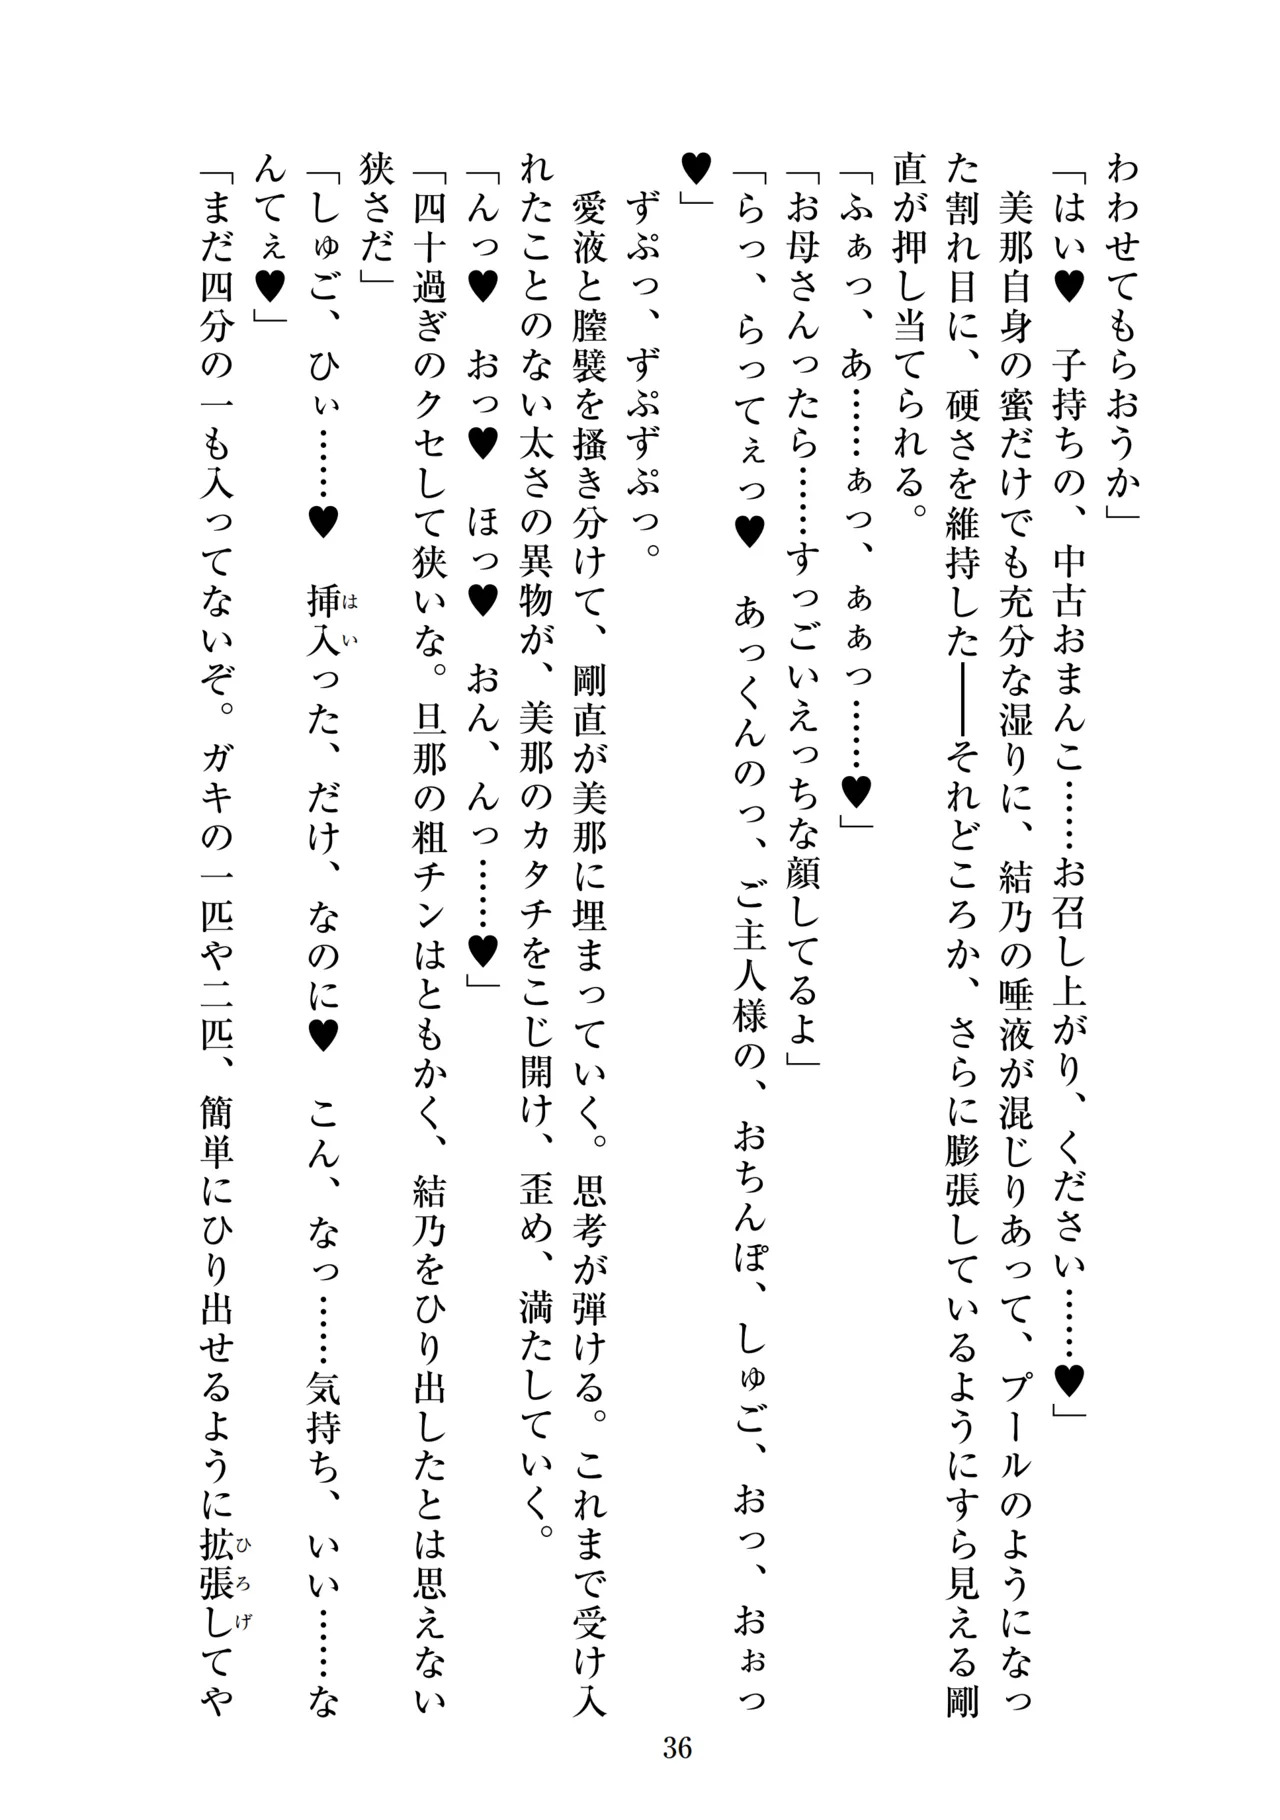 わわせてもらおうか」
「はい♥　子持ちの、中古おまんこ……お召し上がり、ください……♥」
　美那自身の蜜だけでも充分な湿りに、結乃の唾液が混じりあって、プールのようになっ
た割れ目に、硬さを維持した――それどころか、さらに膨張しているようにすら見える剛
直が押し当てられる。
「ふぁっ、あ……ぁっ、ぁぁっ……♥」
「お母さんったら……すっごいえっちな顔してるよ」
「らっ、らってぇっ♥　あっくんのっ、ご主人様の、おちんぽ、しゅご、おっ、おぉっ
♥」
　ずぷっ、ずぷずぷっ。
　愛液と膣襞を掻き分けて、剛直が美那に埋まっていく。思考が弾ける。これまで受け入
れたことのない太さの異物が、美那のカタチをこじ開け、歪め、満たしていく。
「んっ♥　おっ♥　ほっ♥　おん、んっ……♥」
「四十過ぎのクセして狭いな。旦那の粗チンはともかく、結乃をひり出したとは思えない
狭さだ」
「しゅご、ひぃ……♥　挿入はいった、だけ、なのに♥　こん、なっ……気持ち、いい……な
んてぇ♥」
「まだ四分の一も入ってないぞ。ガキの一匹や二匹、簡単にひり出せるように拡張しひろげてや
36